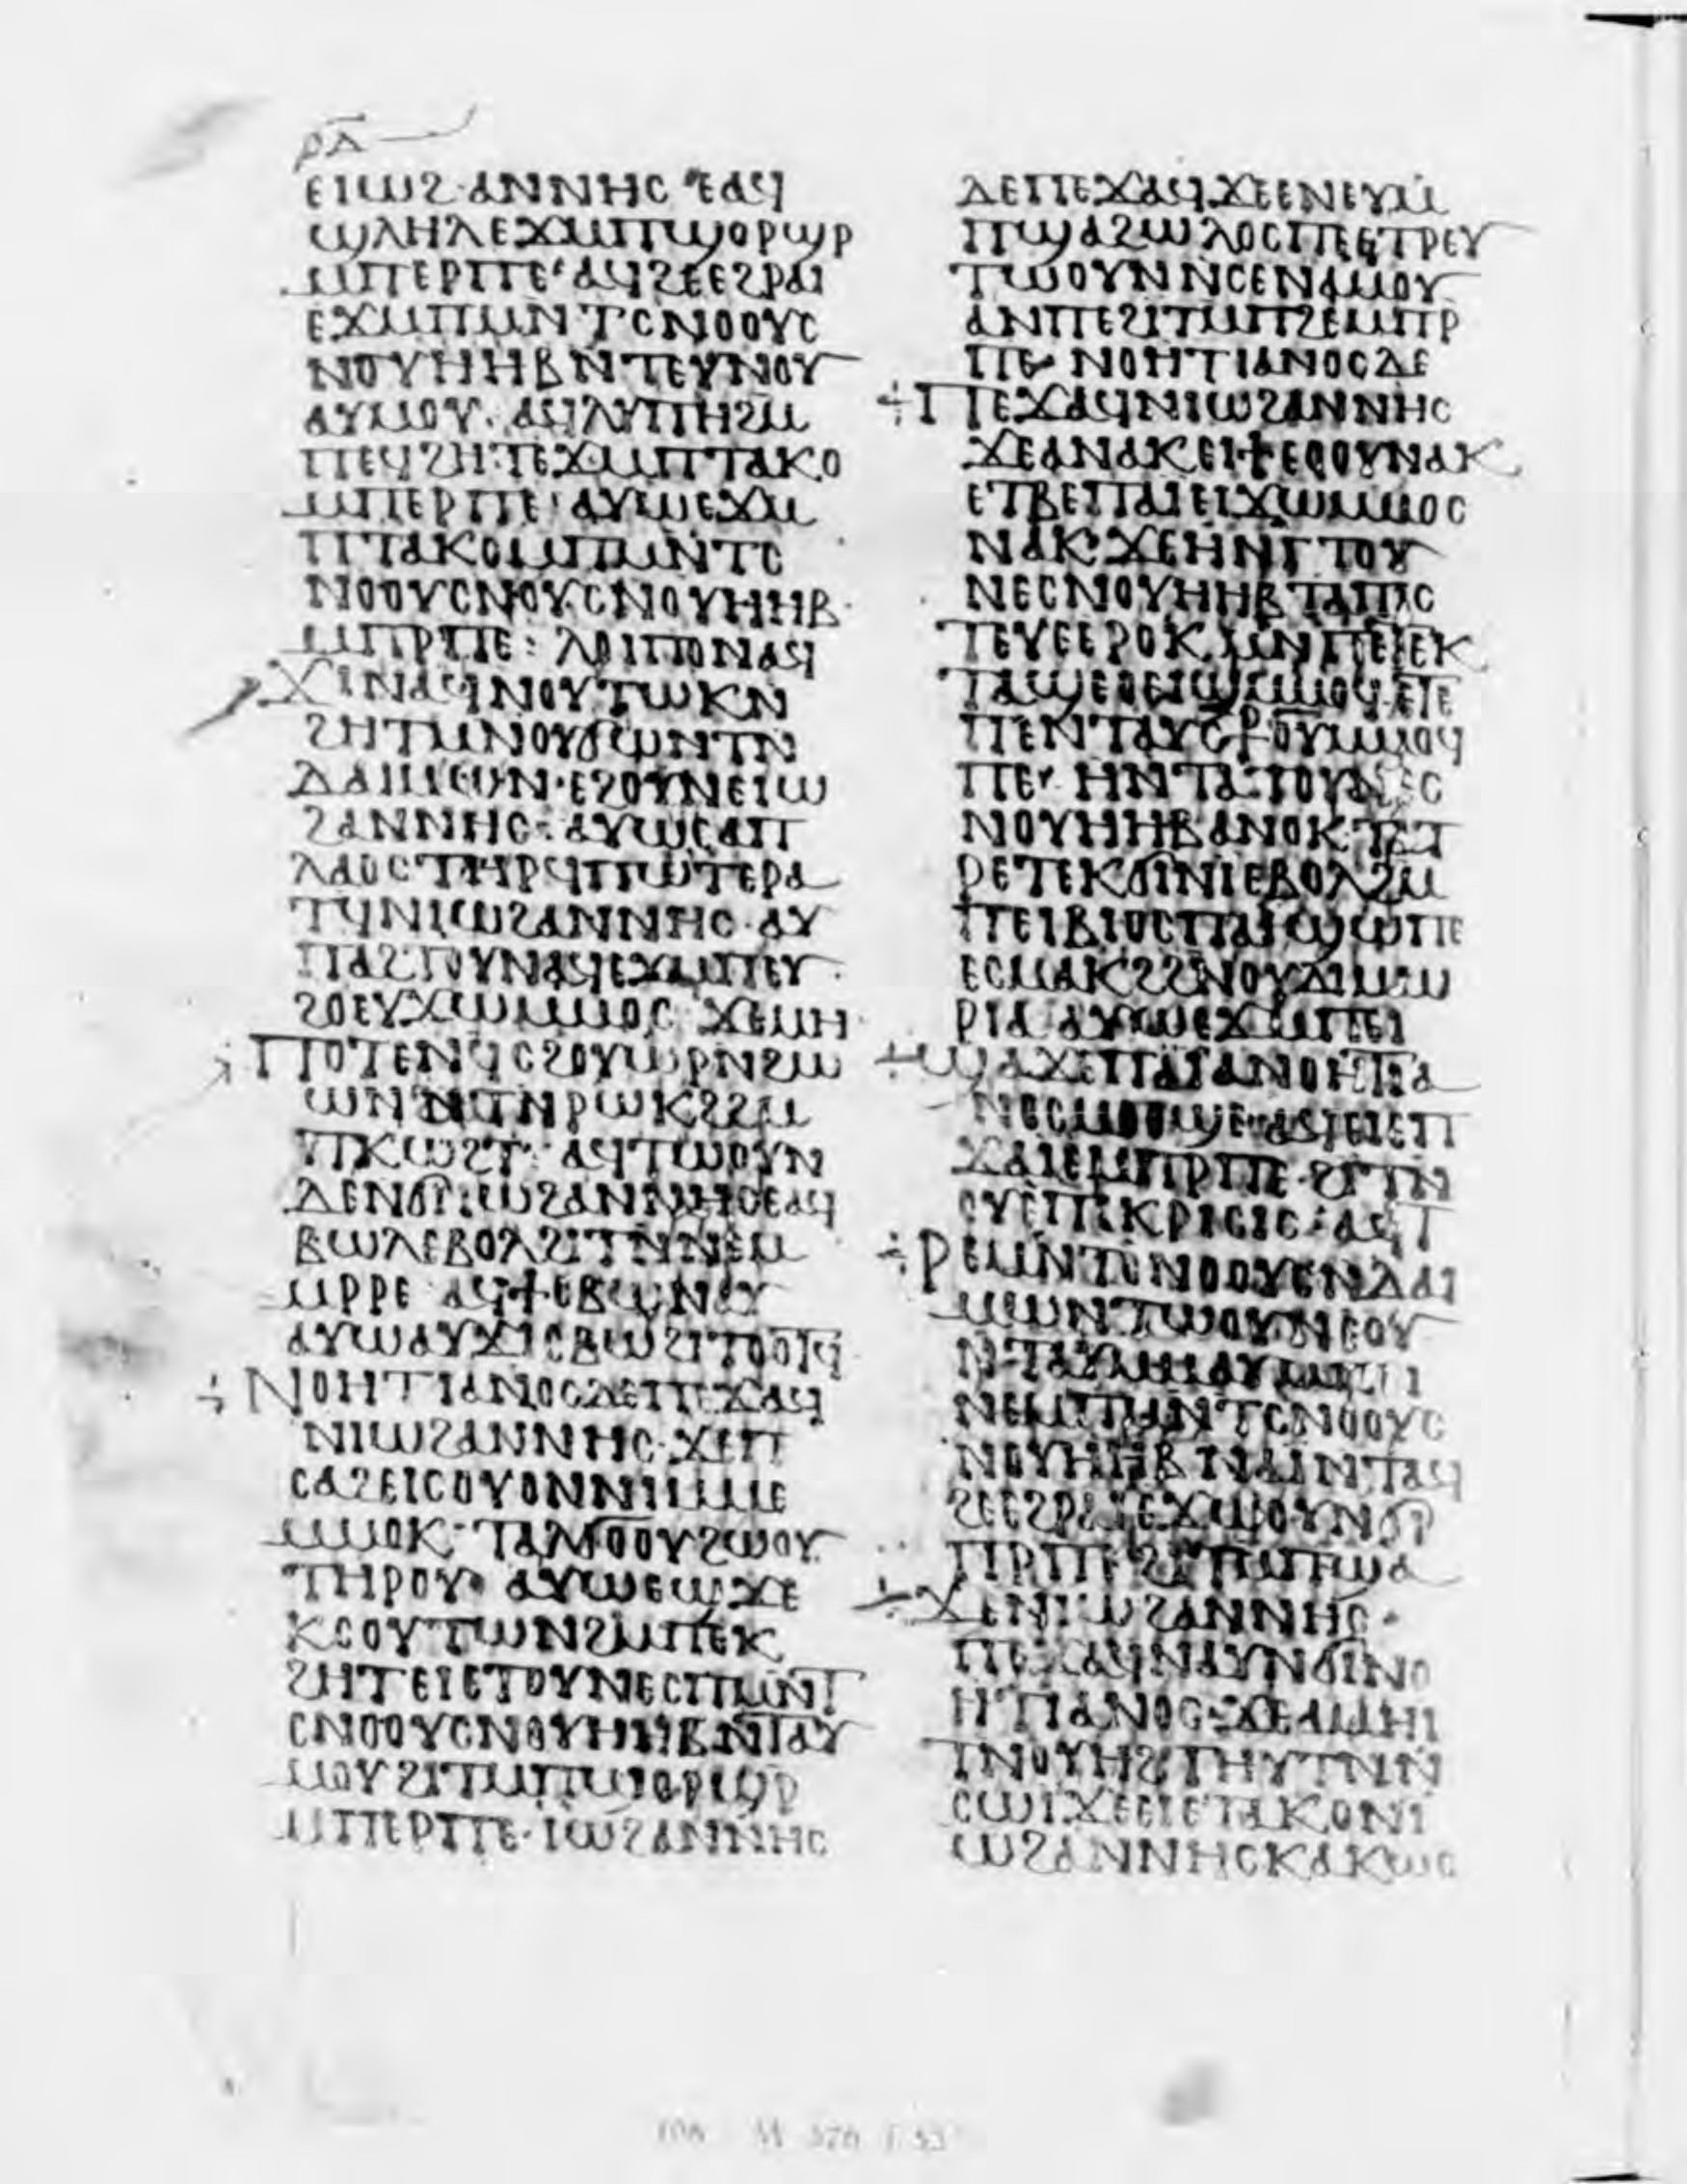 ⲣⲁ
ⲉⲓⲱϩⲁⲛⲛⲏⲥ ⲉⲁϥ
ϣⲗⲏⲗⲉϫⲙⲡϣⲟⲣϣⲣ
ⲙⲡⲉⲣⲡⲉ· ⲁϥϩⲉⲉϩⲣⲁⲓ
ⲉϫⲙⲡⲙⲛⲧⲥⲛⲟⲟⲩⲥ
ⲛⲟⲩⲏⲏⲃⲛⲧⲉⲩⲛⲟⲩ
ⲁⲩⲙⲟⲩ· ⲁϥⲗⲩⲡⲏϩⲙ
ⲡⲉϥϩⲏⲧⲉϫⲙⲡⲧⲁⲕⲟ
ⲙⲡⲉⲣⲡⲉ· ⲁⲩⲱⲉϫⲙ
ⲡⲧⲁⲕⲟⲙⲡⲙⲛⲧⲥ
ⲛⲟⲟⲩⲥⲛⲟⲩⲥⲛⲟⲩⲏⲏⲃ·
ⲙⲡⲣⲡⲉ: ⲗⲟⲓⲡⲟⲛⲁϥ
ϫⲓⲛⲁϥⲛⲟⲩⲧⲱⲕⲛ
ϩⲏⲧⲙⲛⲟⲩϭⲱⲛⲧⲛ
ⲇⲁⲓⲙⲱⲛ·ⲉϩⲟⲩⲛⲉⲓⲱ
ϩⲁⲛⲛⲏⲥ· ⲁⲩⲱⲥⲁⲡ
ⲗⲁⲟⲥⲧⲏⲣϥⲡⲱⲧⲉⲣⲁ
ⲧϥⲛⲓⲱϩⲁⲛⲛⲏⲥ·ⲁⲩ
ⲡⲁϩⲧⲟⲩⲛⲁϥⲉϫⲙⲡⲉⲩ
ϩⲟⲉⲩϫⲱⲙⲙⲟⲥ ϫⲉⲙⲏ
ⲡⲟⲧⲉⲛϥⲥϩⲟⲩⲱⲣⲛϩⲱ
ⲱⲛⲛⲧⲛⲣⲱⲕϩϩⲙ
ⲡⲕⲱϩⲧ· ⲁϥⲧⲱⲟⲩⲛ
ⲇⲉⲛϭⲓⲓⲱϩⲁⲛⲛⲏⲥⲉⲁϥ
ⲃⲱⲗⲉⲃⲟⲗϩⲓⲧⲛⲛⲉⲙ
ⲙⲣⲣⲉ ⲁϥϯⲥⲃⲱⲛⲁⲩ
ⲁⲩⲱⲁⲩϫⲓⲥⲃⲱϩⲓⲧⲟⲟⲧϥ
ⲛⲟⲏⲧⲓⲁⲛⲟⲥⲇⲉⲡⲉϫⲁϥ
ⲛⲓⲱϩⲁⲛⲛⲏⲥ·ϫⲉⲡ
ⲥⲁϩⲉⲓⲥⲟⲩⲟⲛⲛⲓⲙⲙⲉ
ⲙⲙⲟⲕ· ⲧⲁⲛϩⲟⲟⲩϩⲱⲟⲩ
ⲧⲏⲣⲟⲩ· ⲁⲩⲱⲉϣϫⲉ
ⲕⲥⲟⲩⲧⲱⲛϩⲙⲡⲉⲕ
ϩⲏⲧⲉⲓⲉⲧⲟⲩⲛⲉⲥⲡⲙⲛⲧ
ⲥⲛⲟⲟⲩⲥⲛⲟⲩⲏⲏⲃⲛⲧⲁⲩ
ⲙⲟⲩϩⲓⲧⲙⲡϣⲟⲣϣⲣ
ⲙⲡⲉⲣⲡⲉ·ⲓⲱϩⲁⲛⲛⲏⲥ
ⲇⲉⲡⲉϫⲁϥϫⲉⲉⲛⲉⲩⲙ
ⲡϣⲁϩⲱⲗⲟⲥⲡⲉⲉⲧⲣⲉⲩ
ⲧⲱⲟⲩⲛⲛⲥⲉⲛⲁⲙⲟⲩ
ⲁⲛⲡⲉϩⲓⲧⲙⲡϩⲉⲙⲡⲣ
ⲡⲉ· ⲛⲟⲏⲧⲓⲁⲛⲟⲥⲇⲉ
ⲡⲉϫⲁϥⲛⲓⲱϩⲁⲛⲛⲏⲥ
ϫⲉⲁⲛⲁⲕⲉⲓϯⲉⲟⲟⲩⲛⲁⲕ
ⲉⲧⲃⲉⲡⲁⲓⲉⲓϫⲱⲙⲙⲟⲥ
ⲛⲁⲕ·ϫⲉⲏⲛⲅⲧⲟⲩ
ⲛⲉⲥⲛⲟⲩⲏⲏⲃⲧⲁⲡⲓⲥ
ⲧⲉⲩⲉⲉⲣⲟⲕⲙⲛⲡⲉⲧⲉⲕ
ⲧⲁϣⲉⲟⲉⲓϣⲙⲙⲟϥ·ⲉⲧⲉ
ⲡⲉⲛⲧⲁⲩⲥⳁⲟⲩⲙⲙⲟϥ
ⲡⲉ· ⲏⲛⲧⲁⲧⲟⲩⲛⲉⲥ
ⲛⲟⲩⲏⲏⲃⲁⲛⲟⲕ·ⲧⲁⲧ
ⲣⲉⲧⲉⲕϭⲓⲛⲓⲉⲃⲟⲗϩⲙ
ⲡⲉⲓⲃⲓⲟⲥⲡⲁⲓϣⲱⲡⲉ
ⲉⲥⲙⲁⲕϩϩⲛⲟⲩⲇⲓⲙⲱ
ⲣⲓⲁ ⲁⲩⲱⲉϫⲙⲡⲉⲓ
ϣⲁϫⲉⲡⲁⲓⲁⲛⲟⲏⲧⲓⲁ
ⲛⲟⲥⲙⲟⲟϣⲉ·ⲁϥⲉⲓⲉⲡ
ϫⲁⲓⲉⲙⲡⲣⲡⲉ·ϩⲓⲧⲛ
ⲟⲩⲉⲡⲓⲕⲣⲓⲥⲓⲥ·ⲁϥⲧ
ⲣⲉⲙⲛⲧⲥⲛⲟⲟⲩⲥⲛⲇⲁⲓ
ⲙⲱⲛⲧⲱⲟⲩⲛⲉⲟⲩ
ⲛⲉⲙⲡⲙⲛⲧⲥⲛⲟⲟⲩⲥ
ⲛⲟⲩⲏⲏⲃⲛⲁⲓⲛⲧⲁϥ
ϩⲉⲉϩⲣⲁⲓⲉϫⲱⲟⲩⲛϭⲓ
ⲡⲣⲡⲉϩⲙⲡⲙⲡϣⲁ
ϫⲉⲛⲓⲱϩⲁⲛⲛⲏⲥ·
ⲡⲉϫⲁϥⲛⲁⲩⲛϭⲓⲛⲟ
ⲏⲧⲓⲁⲛⲟⲥ·ϫⲉⲁⲙⲏⲓ
ⲧⲛⲟⲩⲏϩⲧⲏⲩⲧⲛⲛ
ⲥⲱⲓϫⲉⲉⲓⲉⲧⲁⲕⲟⲛⲓ
ⲱϩⲁⲛⲛⲏⲥⲕⲁⲕⲱⲥ